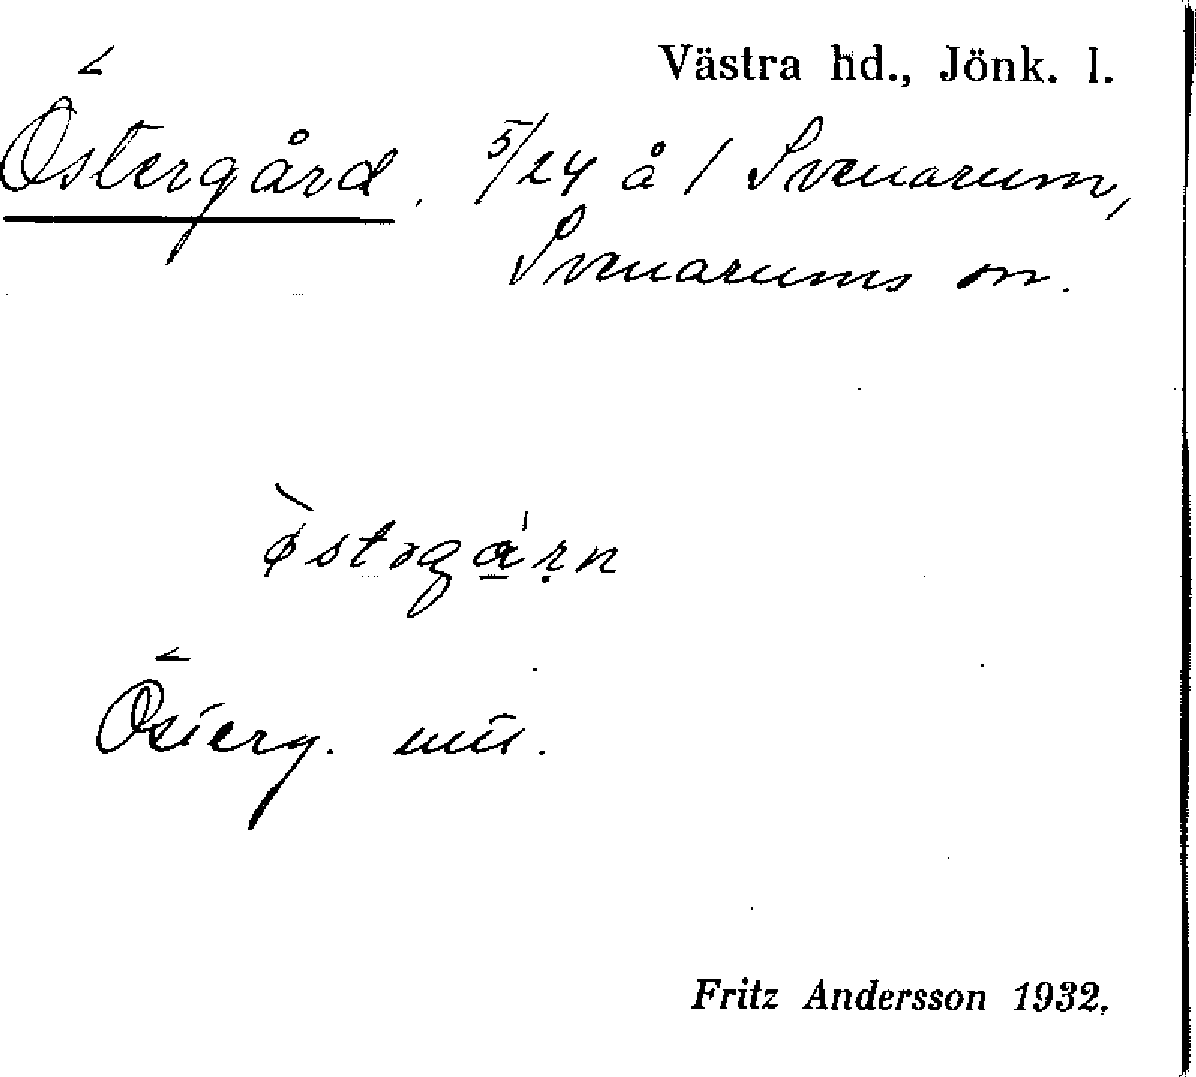 Västra hd., Jönk. l.
Östergård. 5/24 å 1 Svenarum,
Svenarums sn.
ø̀stəgа̲̍ṛn
Österg. mtl.
Fritz Andersson 1932.